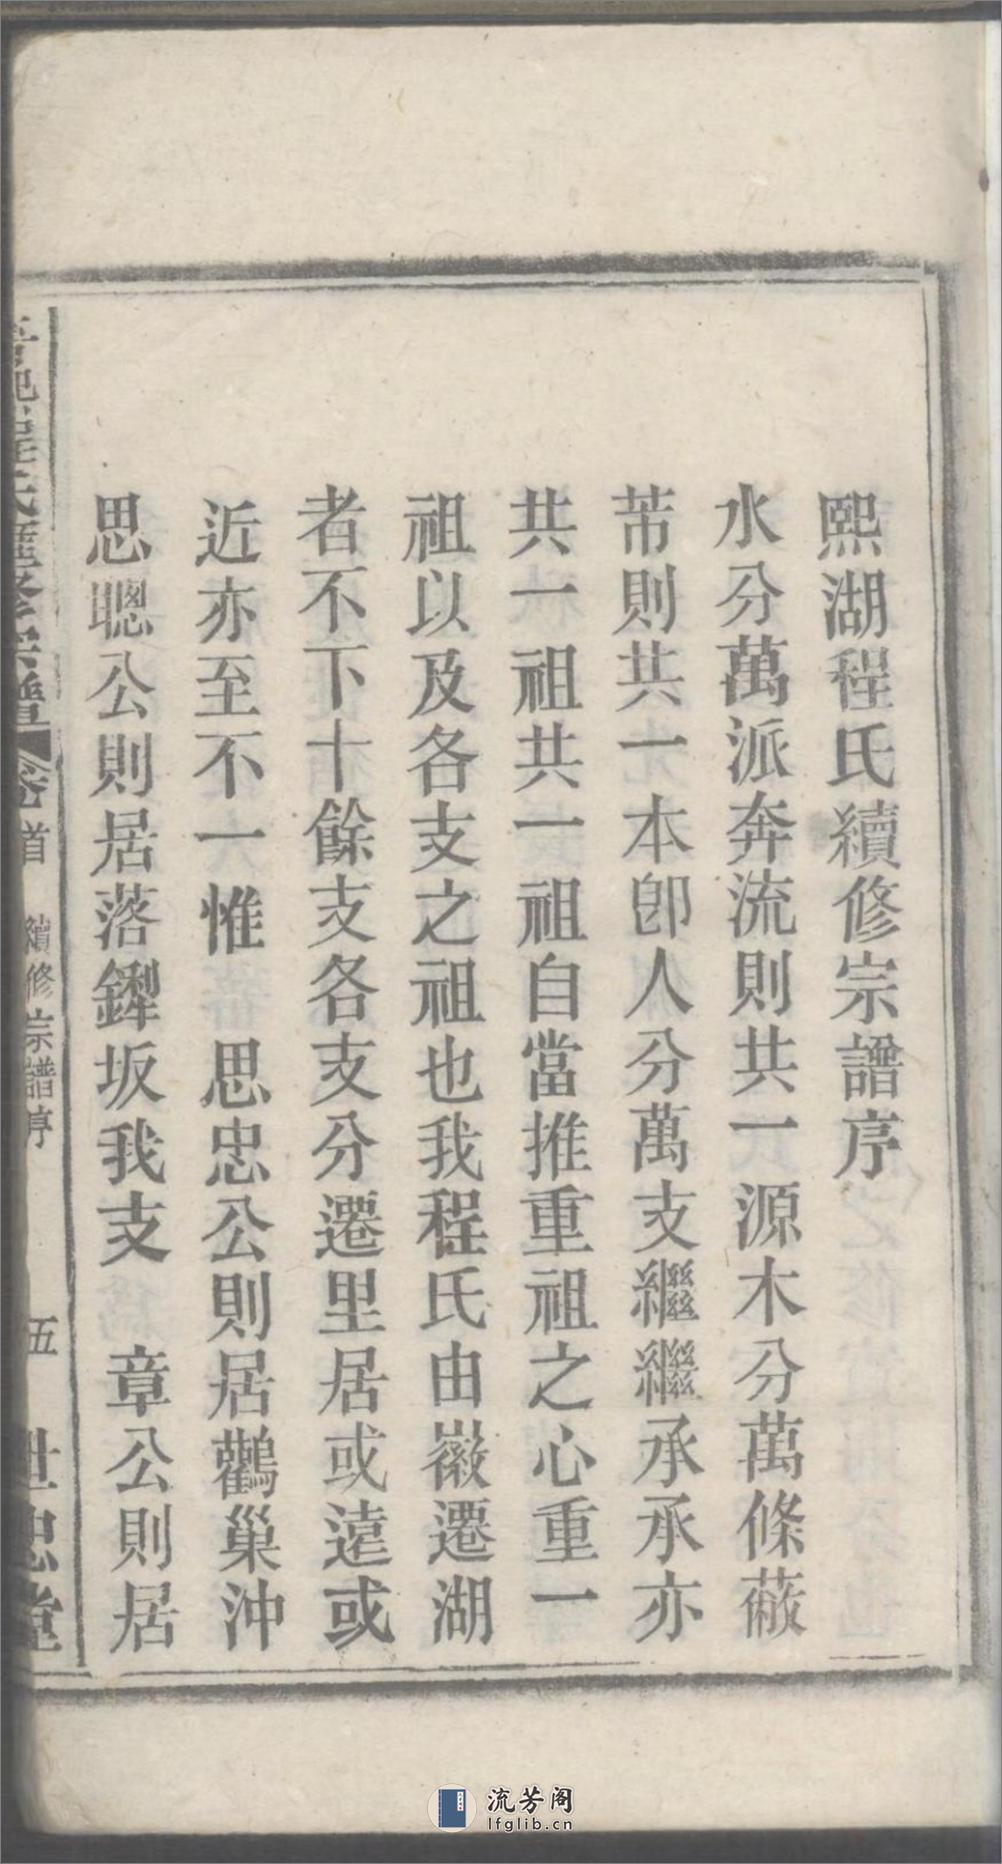 熙湖程氏續修宗譜序
水分萬派奔流則共一源木分萬條蔽
芾則共一本卽人分萬支繼繼承承亦
共一祖共一祖自當推重祖之心重一
祖以及各支之祖也我程氏由徽遷湖
者不下十餘支各支分遷里居或遠或
近亦至不一惟 思忠公則居鸛巢沖
思聰公則居落鏵坂我支 章公則居
程氏 宗譜 卷首 續修宗譜序 五 世忠堂
流芳阁
lfglib.cn